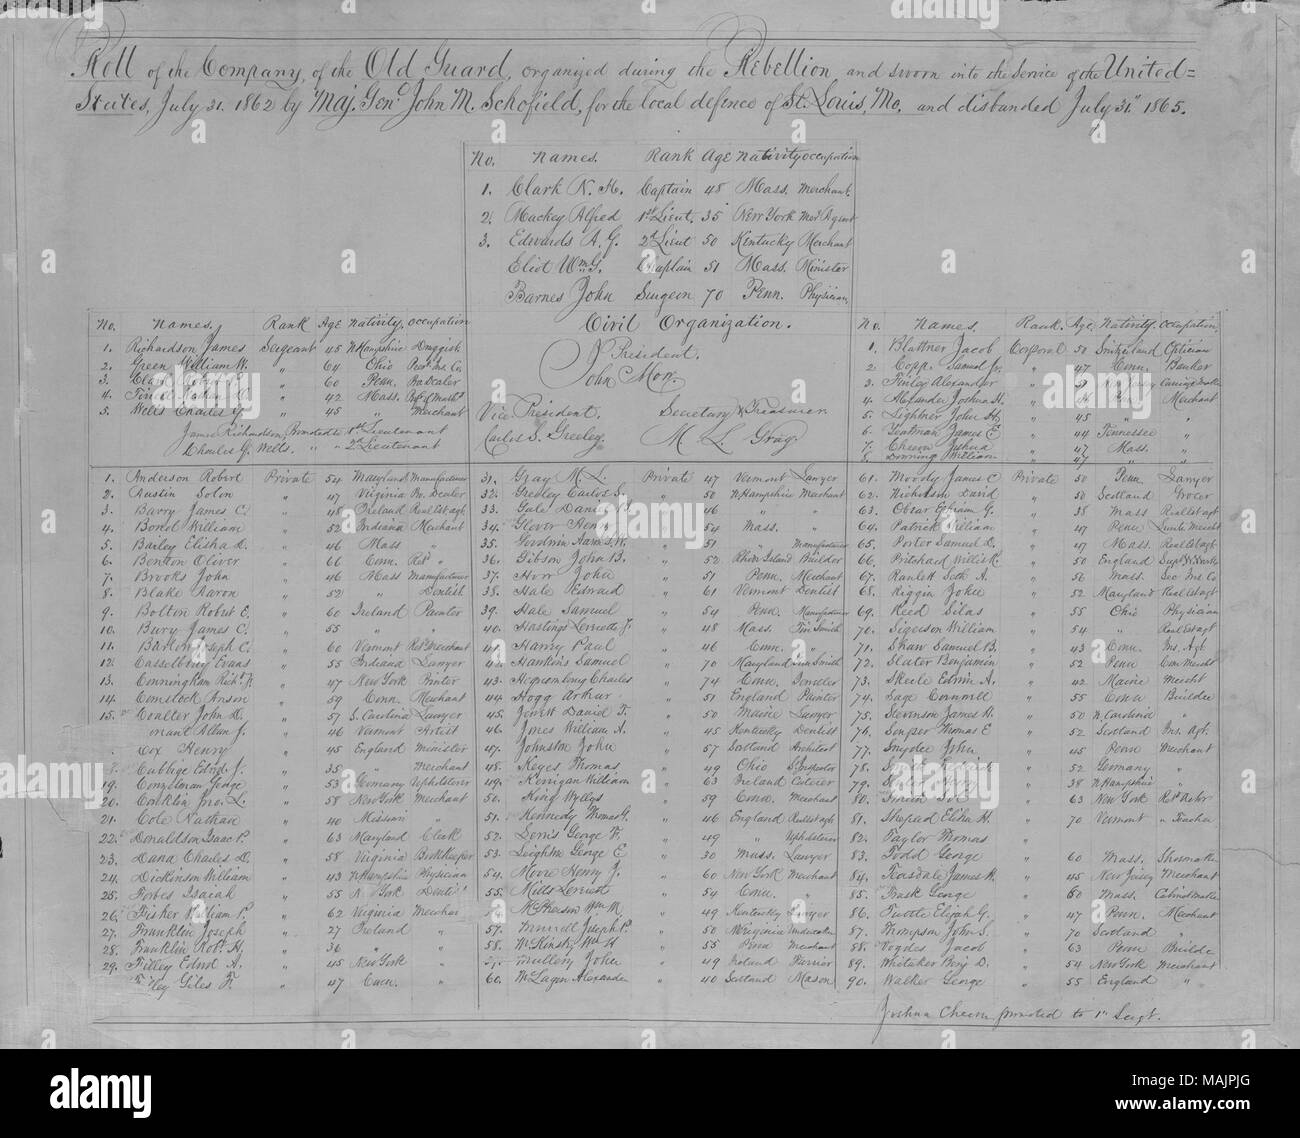 Roll of the Company, of the Old Guard, organized during the Rebellion, and sworn into the Service of the United=
States, July 31. 1862 by Maj. Genl. John M. Schofield, for the local defence of St. Louis, Mo, and disbanded July 31st 1865.
No. Names. Rank Age Nativity occupation
1. Clark N. H. Captain 48 Mass. Merchant.
2. Mackey Alfred 1st Lieut. 35 New York Agent
3. Edwards A. G. 2d Lieut 50 Kentucky Merchant
Eliot Wm G. Chaplain 51 Mass. Minister
Barnes John Surgeon 70 Penn. Physician
Civil Organization.
President.
John How.
Vice President. Secretary & Treasurer
Carlos S. Greeley. M. L. Gray.
No. Names. Rank Age Nativity. occupation
1. Richardson James Sergeant 45 N Hampshire Druggist
2. Green William W. " 64 Ohio
3. " 60 Penn. Dealer
4. " 42 Mass.
5. Wells Charles G. " 45 " Merchant
James Richardson, Promoted to 1st Lieutenant
Charles G. Wells. " " 2d Lieutenant
No. Names. Rank. Age Nativity. Occupation
1. Blattner Jacob Corporal 50 Switzerland Optician
2. Copp Samuel Jr. " 47 Conn. Banker
3. Finley Alexander " New Jersey
4. Alexander Joshua H. " Merchant
5. Lightner John H.
6. Yeatman James E " 44 Tennessee "
7. Cheever Joshua " 47 Mass. "
8. William " 47 " "
1. Anderson Robert Private 54 Maryland Manufacturer
2. Austin Solon " 47 Virginia Dealer
3. Barry James C. " 48 Ireland Real Est agt
4. Bond William " 52 Indiana Merchant
5. Bailey Elisha D. " 46 Mass "
6. Benton Oliver " 66 Conn. Retd "
7. Brooks John " 46 Mass Manufacturer
8. Blake Aaron " 52 " Dentist
9. Bolton Robert E. " 60 Ireland Painter
10. Bury James C. " 55 "
11. Barlow Joseph C. " 60 Vermont Retd Merchant
12. Casselberry Evans " 55 Indiana Lawyer
13. Cunningham Richd. " 47 New York Printer
14. Comstock Anson " 59 Conn. Merchant
15. Coulter John D. " 57 S. Carolina Lawyer
Allan J. " 46 Vermont Artist
Cox Henry " 45 England Minister
Cubbige Edwd J. " 35 " Merchant
19. Conzelman " 53 Germany Upholsterer
20. Conklin Jno. L. " 58 New York Merchant
21. Cole Nathan " 40 Missouri "
22. Donaldson Isaac P. " 63 Maryland Clerk
23. Dana Charles D. " 58 Virginia Book Keeper
24. Dickinson William " 43 N Hampshire Physician
25. Forbes Isaiah " 55 N. York Dentist
26. Fisher William P. " 62 Virginia
27. Franklin Joseph " 27 Ireland "
28. Franklin Robt. H. " 36 " "
29. Filley Edwd A. " 45 New York "
Giles F. " 47 Conn. "
31. Gray M. L. Private 47 Vermont Lawyer
32. Greeley Carlos S. " 50 N Hampshire Merchant
33. Gale Daniel B. " 46 " "
34. Glover Henry " 54 Mass. "
35. Goodwin " 51 " Manufacturer
36. Gibson John B. " 52 Rhode Island Builder
37. John " 51 Penn. Merchant
38. Hale Edward " 61 Vermont Dentist
39. Hale Samuel " 54 Penn Manufacturer
40. Hastings " 48 Mass. Tin Smith
41. Harry Paul " 46 Conn. "
42. Hankins Samuel " 70 Maryland Smith
43. Charles " 74 Conn. Jeweler
44. Hogg Arthur " 51 England Painter
45. Jewett David T. " 50 Maine Lawyer
46. Jones William A. " 45 Kentucky Dentist
47. Johnston John " 57 Scotland Architect
48. Keyes Thomas " 49 Ohio
49. Kerrigan William " 63 Ireland
50. King Wyllys " 59 Conn. Merchant
51. Kennedy Thomas G. " 46 England Real Est agt
52. George W. " 49 " Upholsterer
53. Leighton George E " 30 Mass. Lawyer
54. Moore Henry J. " 60 New York Merchant
55. Mills " 54 Conn. "
McPherson Wm M. " 49 Kentucky Lawyer
57. Murrell Joseph P. " 50
58. McKinsty Wm H " 55 Penn Merchant
Mullery John " 49 Ireland
60. Alexander " 40 Scotland Mason
61. Moody James C Private 50 Penn Lawyer
62. Nicholson David " 50 Scotland Grocer
63. Obear Ephram G. " 38 Mass Real Est agt
64. Patrick William " 47 Penn
65. Porter Samuel D. " 47 Mass. Real Est agt
66. Pritchard " 50 England
67. Ranlett Seth A. " 56 Mass.
68. Riggin John " 52 Maryland Real Est agt
69. Reed Silas " 55 Ohio Physician
70. Sigerson William " 54 " Real Est agt
71. Shaw Samuel B. " 43 Conn. Ins. Agt
72. Slater Benjamin " 52 Penn Com Mercht
73. Skeele Edwin A. " 42 Maine Mercht
74. Sage Cornwell " 55 Conn Builder
75. Stevenson James H. " 50 N. Carolina "
76. Semper Thomas E " 52 Scotland Ins. Agt.
77. Snyder John " 45 Penn Merchant
78. " 52 Germany "
79. Henry " 38 N Hampshire "
80. " 63 New York
81. Shepard Elihu H. " 70 Vermont " Teacher
82. Taylor Thomas "
83. Todd George " 60 Mass. Shoemaker
84. Teasdale James " 45 New Jersey Merchant
85. Trask George " 60 Mass. Cabinet maker
86. Elijah G. " 47 Penn. Merchant
87. Thompson John S. " 70 Scotland "
88. Vogdes Jacob " 63 Penn Builder
89. Whitaker Benj D. " 54 New York Merchant
90. Walker George " 55 England "
Joshua Cheever promoted to 1st Sergt.
alamy
Image ID: MAJPJG
www.alamy.com